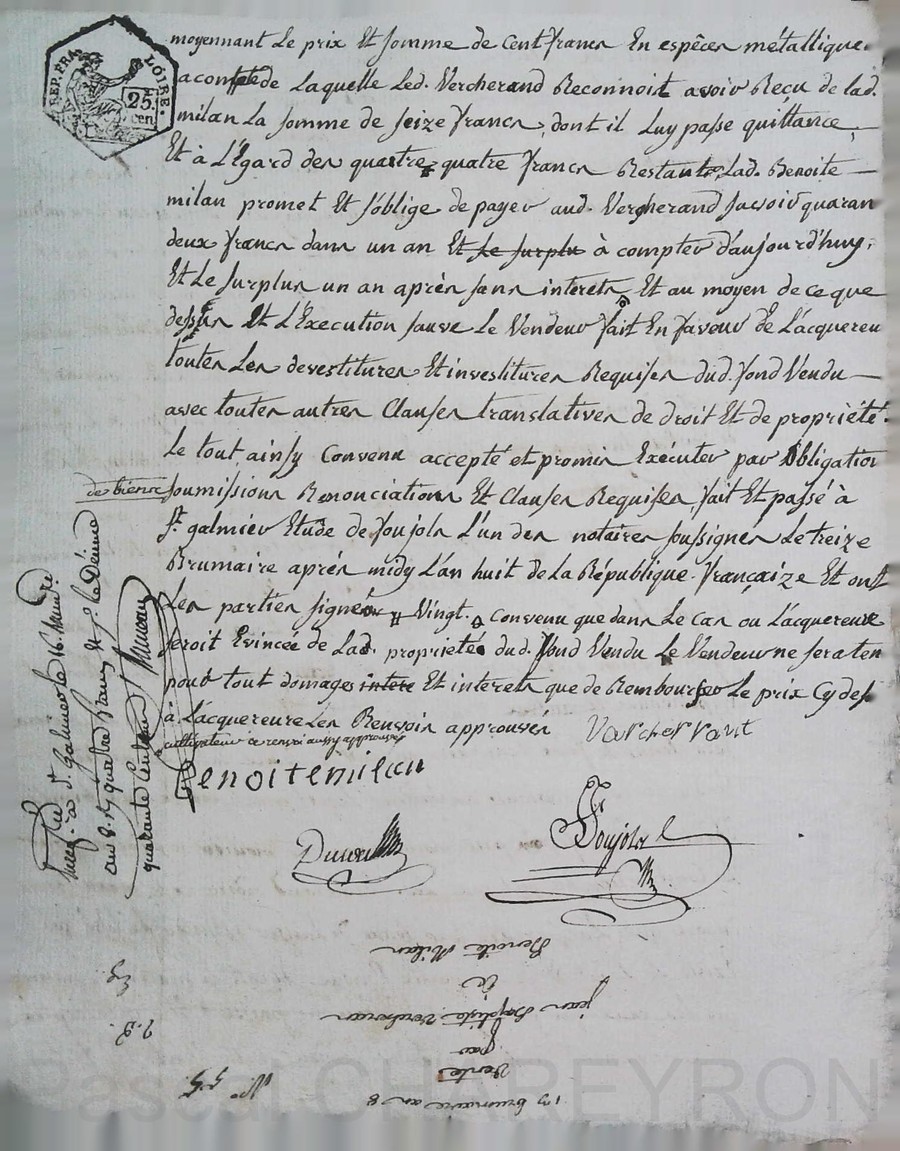 REP. FRA. LOIRE.
25.
cen.
moyennant Le prix Et somme de Cent francs En espêces métallique.
acompte de Laquelle Led. Vercherand Reconnoit avoir Reçu de lad.
milan La somme de seize francs, dont il Luy passe quittance,
Et à L'Egard des quatre quatre francs Restants, Lad. Benoite
milan promet Et s'oblige de payer aud. Vercherand savoir quaran
deux francs dans un an Et Le surplus à compter d'aujourd'huy,
Et Le surplus un an après sans interets, Et au moyen de ce que
dessus Et L'Execution sauve Le Vendeur fait En faveur de L'acquereu
toutes Les devestitures Et investitures Requises dud. fond Vendu
avec toutes autres Clauses translatives de droit Et de propriété.
Le tout ainsy Convenu accepté et promis Exécuter par Obligation
de biens soumissions Renonciations Et Clauses Requises, fait Et passé à
St. galmier Etude de Soujols L'un des notaires soussignés Le treize
Brumaire après midy L'an huit de La République française Et ont
Les parties signé Vingt. Convenu que dans Le cas ou L'acquereure
seroit Evincée de Lad. propriété dud. fond Vendu Le Vendeur ne sera ten
pour tout domages intere Et interets que de Rembourser Le prix Cy des
à L'acquereure Les Renvois approuvés Varcherrant
cultivateur ce renvoi aussy approuvé
Benoitemilan
Soujols
à St. Galmier le 16. Brum.re
an 8. quatre francs
quarante Centimes
Benoite Milan
à
jean Baptiste Vercheran
par
Vente
13 brumaire an 8
N° 55
Pascal CHAPEYRON